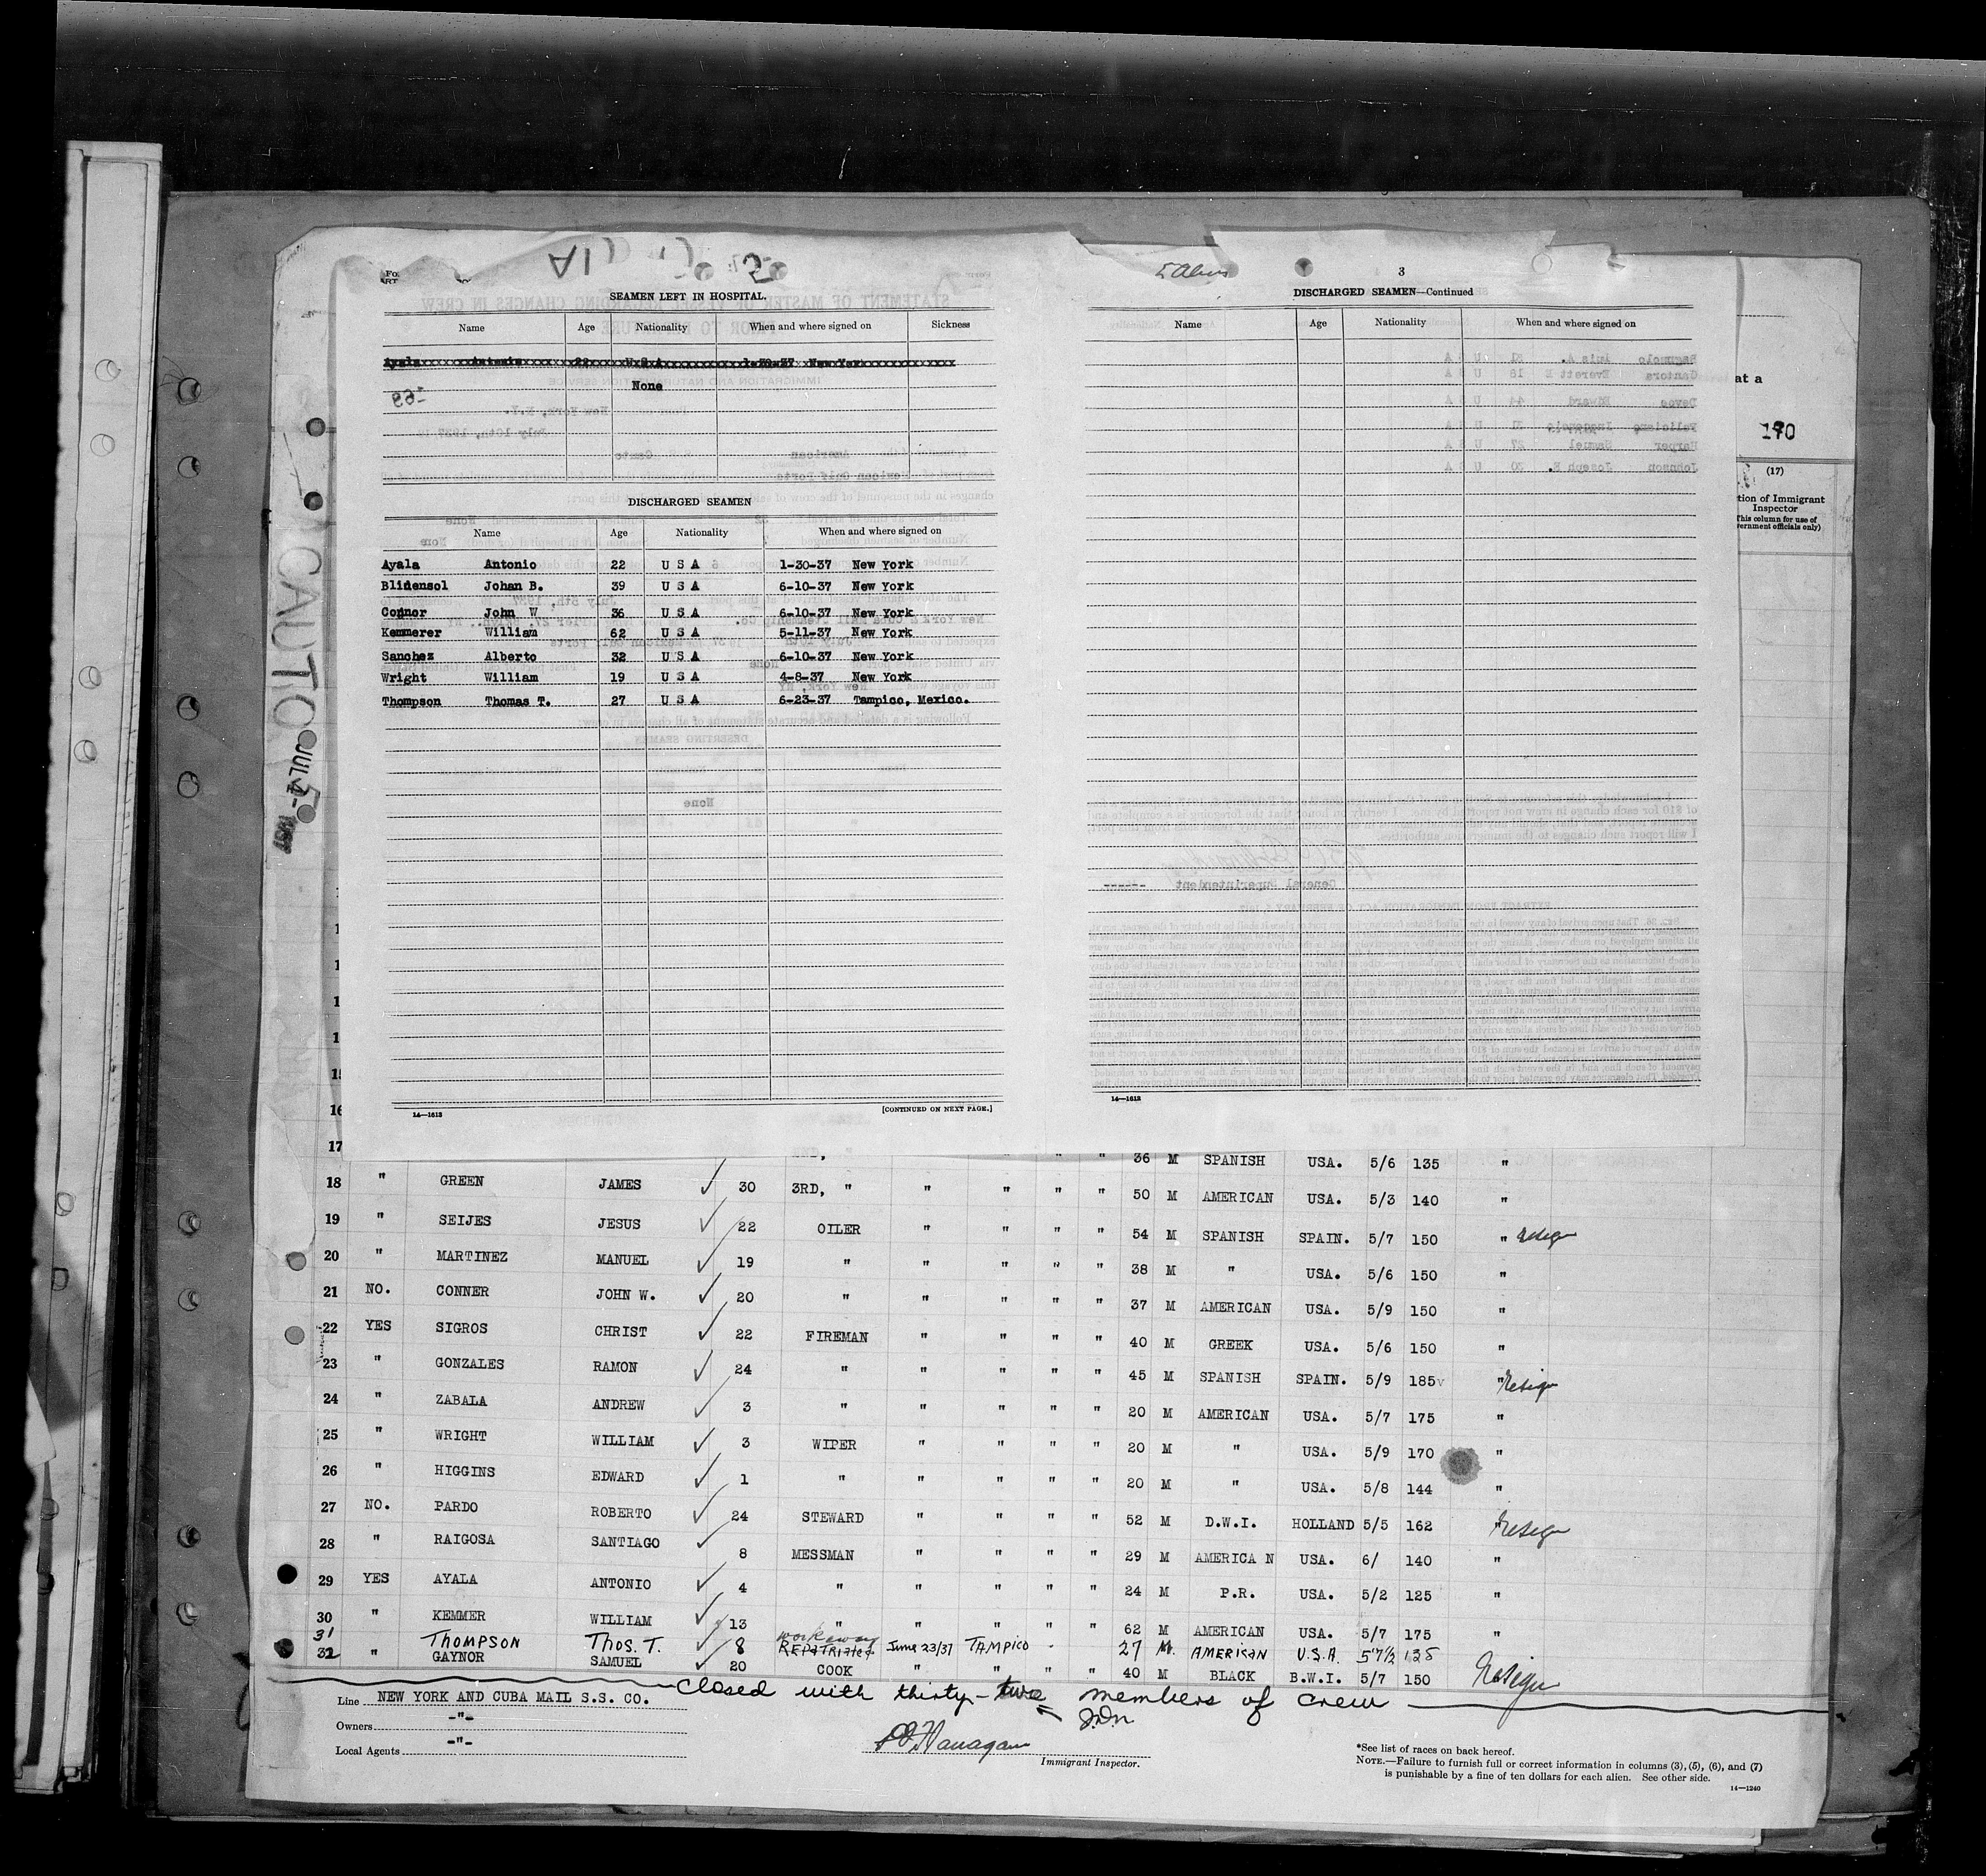 5 Aliens
SEAMEN LEFT IN HOSPITAL.
Name Age Nationality When and where signed on Sickness
Ayala Antonio 22 U S A 1-30-37 New York
None
DISCHARGED SEAMEN
Name Age Nationality When and where signed on
Ayala Antonio 22 U S A 1-30-37 New York
Blidensol Johan B. 39 U S A 6-10-37 New York
Connor John W 36 U S A 6-10-37 New York
Kemmerer William 62 U S A 5-11-37 New York
Sanchez Alberto 32 U S A 6-10-37 New York
Wright William 19 U S A 4-8-37 New York
Thompson Thomas T. 27 U S A 6-23-37 Tampico, Mexico.
14—1613 [CONTINUED ON NEXT PAGE.]
3
DISCHARGED SEAMEN—Continued
Name Age Nationality When and where signed on
14—1613
at a
170
(17)
tion of Immigrant
Inspector
This column for use of
ernment officials only)
CAUTION
JUL
16
17 36 M SPANISH USA. 5/6 135 "
18 " GREEN JAMES 30 3RD, " " " " " 50 M AMERICAN USA. 5/3 140 "
19 " SEIJES JESUS 22 OILER " " " " 54 M SPANISH SPAIN. 5/7 150 "
20 " MARTINEZ MANUEL 19 " " " " " 38 M " USA. 5/6 150 "
21 NO. CONNER JOHN W. 20 " " " " " 37 M AMERICAN USA. 5/9 150 "
22 YES SIGROS CHRIST 22 FIREMAN " " " " 40 M GREEK USA. 5/6 150 "
23 " GONZALES RAMON 24 " " " " " 45 M SPANISH SPAIN. 5/9 185 "
24 " ZABALA ANDREW 3 " " " " " 20 M AMERICAN USA. 5/7 175 "
25 " WRIGHT WILLIAM 3 WIPER " " " " 20 M " USA. 5/9 170 "
26 " HIGGINS EDWARD 1 " " " " " 20 M " USA. 5/8 144 "
27 NO. PARDO ROBERTO 24 STEWARD " " " " 52 M D.W.I. HOLLAND 5/5 162 "
28 " RAIGOSA SANTIAGO 8 MESSMAN " " " " 29 M AMERICA N USA. 6/ 140 "
29 YES AYALA ANTONIO 4 " " " " " 24 M P.R. USA. 5/2 125 "
30 " KEMMER WILLIAM 13 " " " " " 62 M AMERICAN USA. 5/7 175 "
31 THOMPSON THOS. T. 8 workaway REPATRIATED June 23/37 TAMPICO 27 M. AMERICAN U.S.A. 5'7½ 135
32 " GAYNOR SAMUEL 20 COOK " " " " 40 M BLACK B.W.I. 5/7 150
Closed with thirty-two members of crew
Line NEW YORK AND CUBA MAIL S.S. CO.
Owners -"-
Local Agents -"-
Immigrant Inspector.
*See list of races on back hereof.
NOTE.—Failure to furnish full or correct information in columns (3), (5), (6), and (7)
is punishable by a fine of ten dollars for each alien. See other side.
14—1240